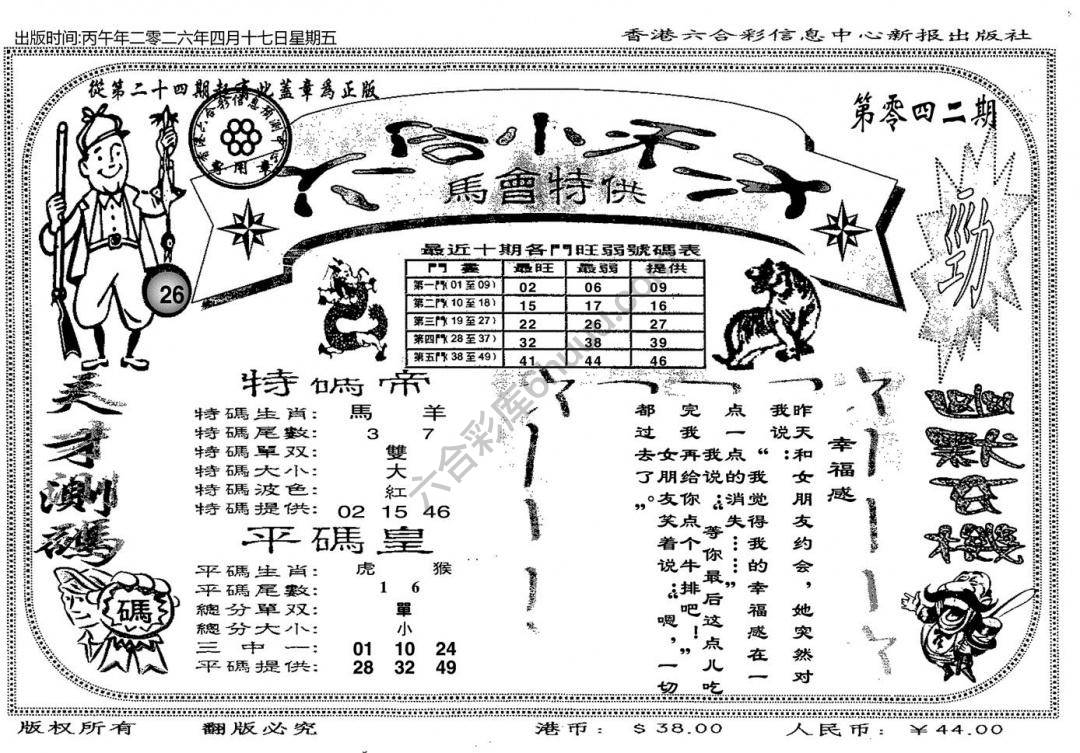 出版时间:丙午年二零二六年四月十七日星期五
香港六合彩信息中心新报出版社
從第二十四期起賣此蓋章爲正版
專用章
第零四二期
馬會特供
勁
26
最近十期各門旺弱號碼表
門畫 最旺 最弱 提供
第一門(01至09) 02 06 09
第二門(10至18) 15 17 16
第三門(19至27) 22 26 27
第四門(28至37) 32 38 39
第五門(38至49) 41 44 46
天才測碼
特碼帝
特碼生肖: 馬 羊
特碼尾數: 3 7
特碼單双: 雙
特碼大小: 大
特碼波色: 紅
特碼提供: 02 15 46
平碼皇
平碼生肖: 虎 猴
平碼尾數: 1 6
總分單双: 單
總分大小: 小
三中一: 01 10 24
平碼提供: 28 32 49
碼
幸福感
昨天和女朋友约会，她突然对
我说：“我觉得我的幸福感在一
点一点的消失……”
我说：“等你最后这点儿吃
完我再给你点个牛排吧！”
女朋友笑着说：“嗯，一切
都过去了。”
幽默玄機
六合彩库6huuu.com
版权所有 翻版必究 港币: $38.00 人民币: ¥44.00